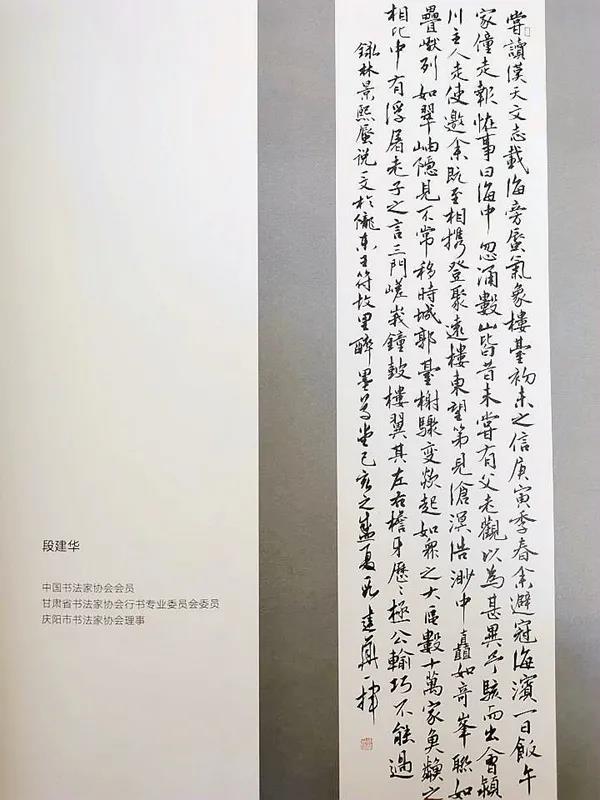 嘗讀漢天文志載海旁蜃氣象樓臺初未之信庚寅季春余避寇海濱一日飯午
家僮走報怪事曰海中忽涌數山皆昔未嘗有父老觀以為甚異予駭而出會穎
川主人走使邀余既至相攜登聚遠樓東望第見滄溟浩渺中矗如奇峯聯如
疊巘列如翠岫隱見不常移時城郭臺榭驟變欻起如眾之大區數十萬家魚鱗之
相比中有浮屠老子之言三門嵯峩鐘鼓樓翼其左右檐牙歷〻極公輸巧不能過
錄林景熙蜃說一文於隴東王符故里醉墨堂己亥之盛夏段建華一揮
段建华
中国书法家协会会员
甘肃省书法家协会行书专业委员会委员
庆阳市书法家协会理事